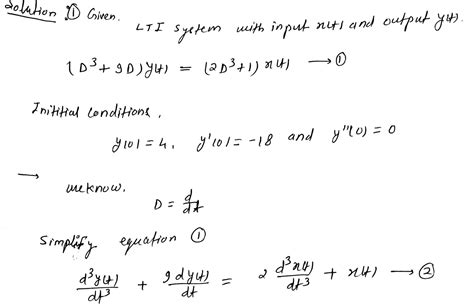 Solution ① Given.
LTI system with input x(t) and output y(t).
(D³ + 9D) y(t) = (2D³+1) x(t) → ①
Initital conditions,
y(0) = 4, y'(0) = -18 and y''(0) = 0
→ we know,
D = d/dt
Simplify equation ①
d³y(t)/dt³ + 9dy(t)/dt = 2 d³x(t)/dt³ + x(t) → ②